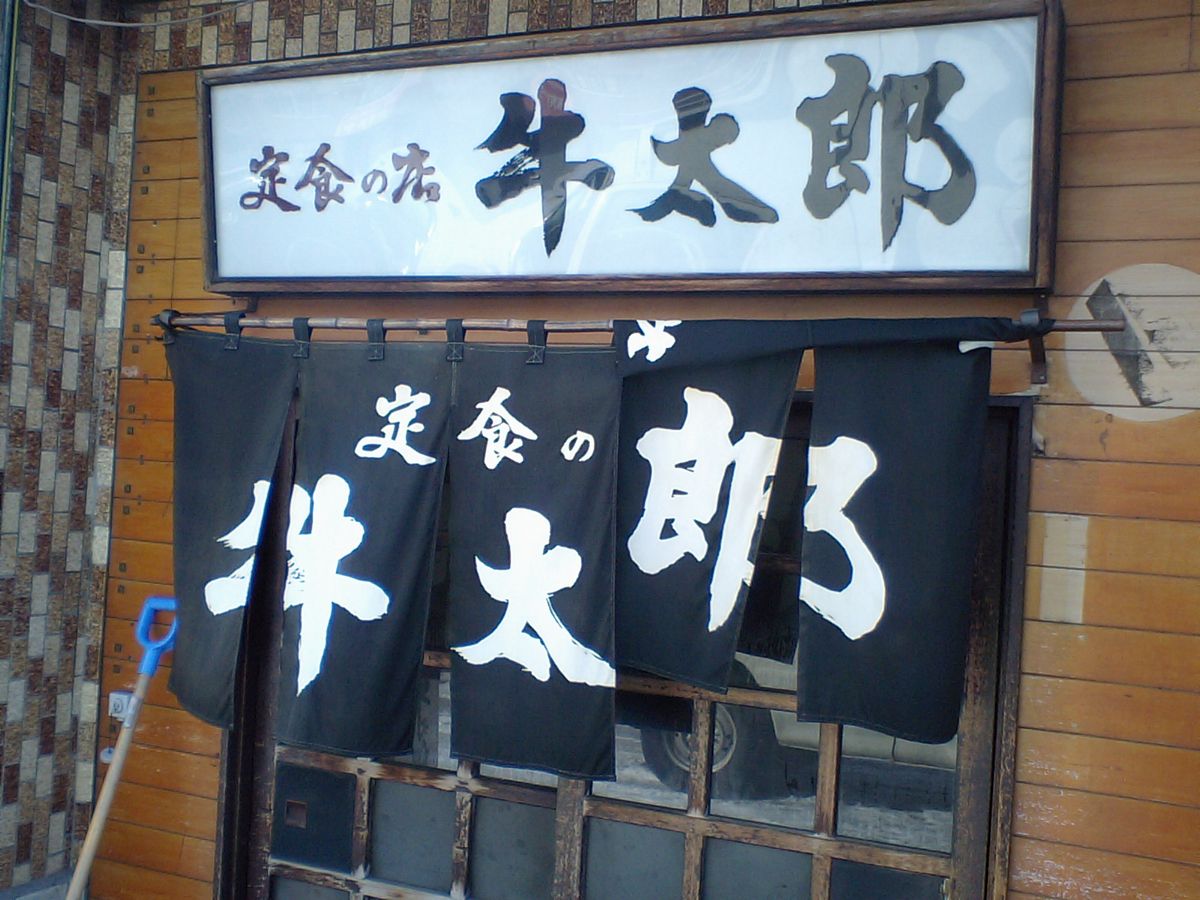 定食の店 牛太郎
定食の
牛太郎